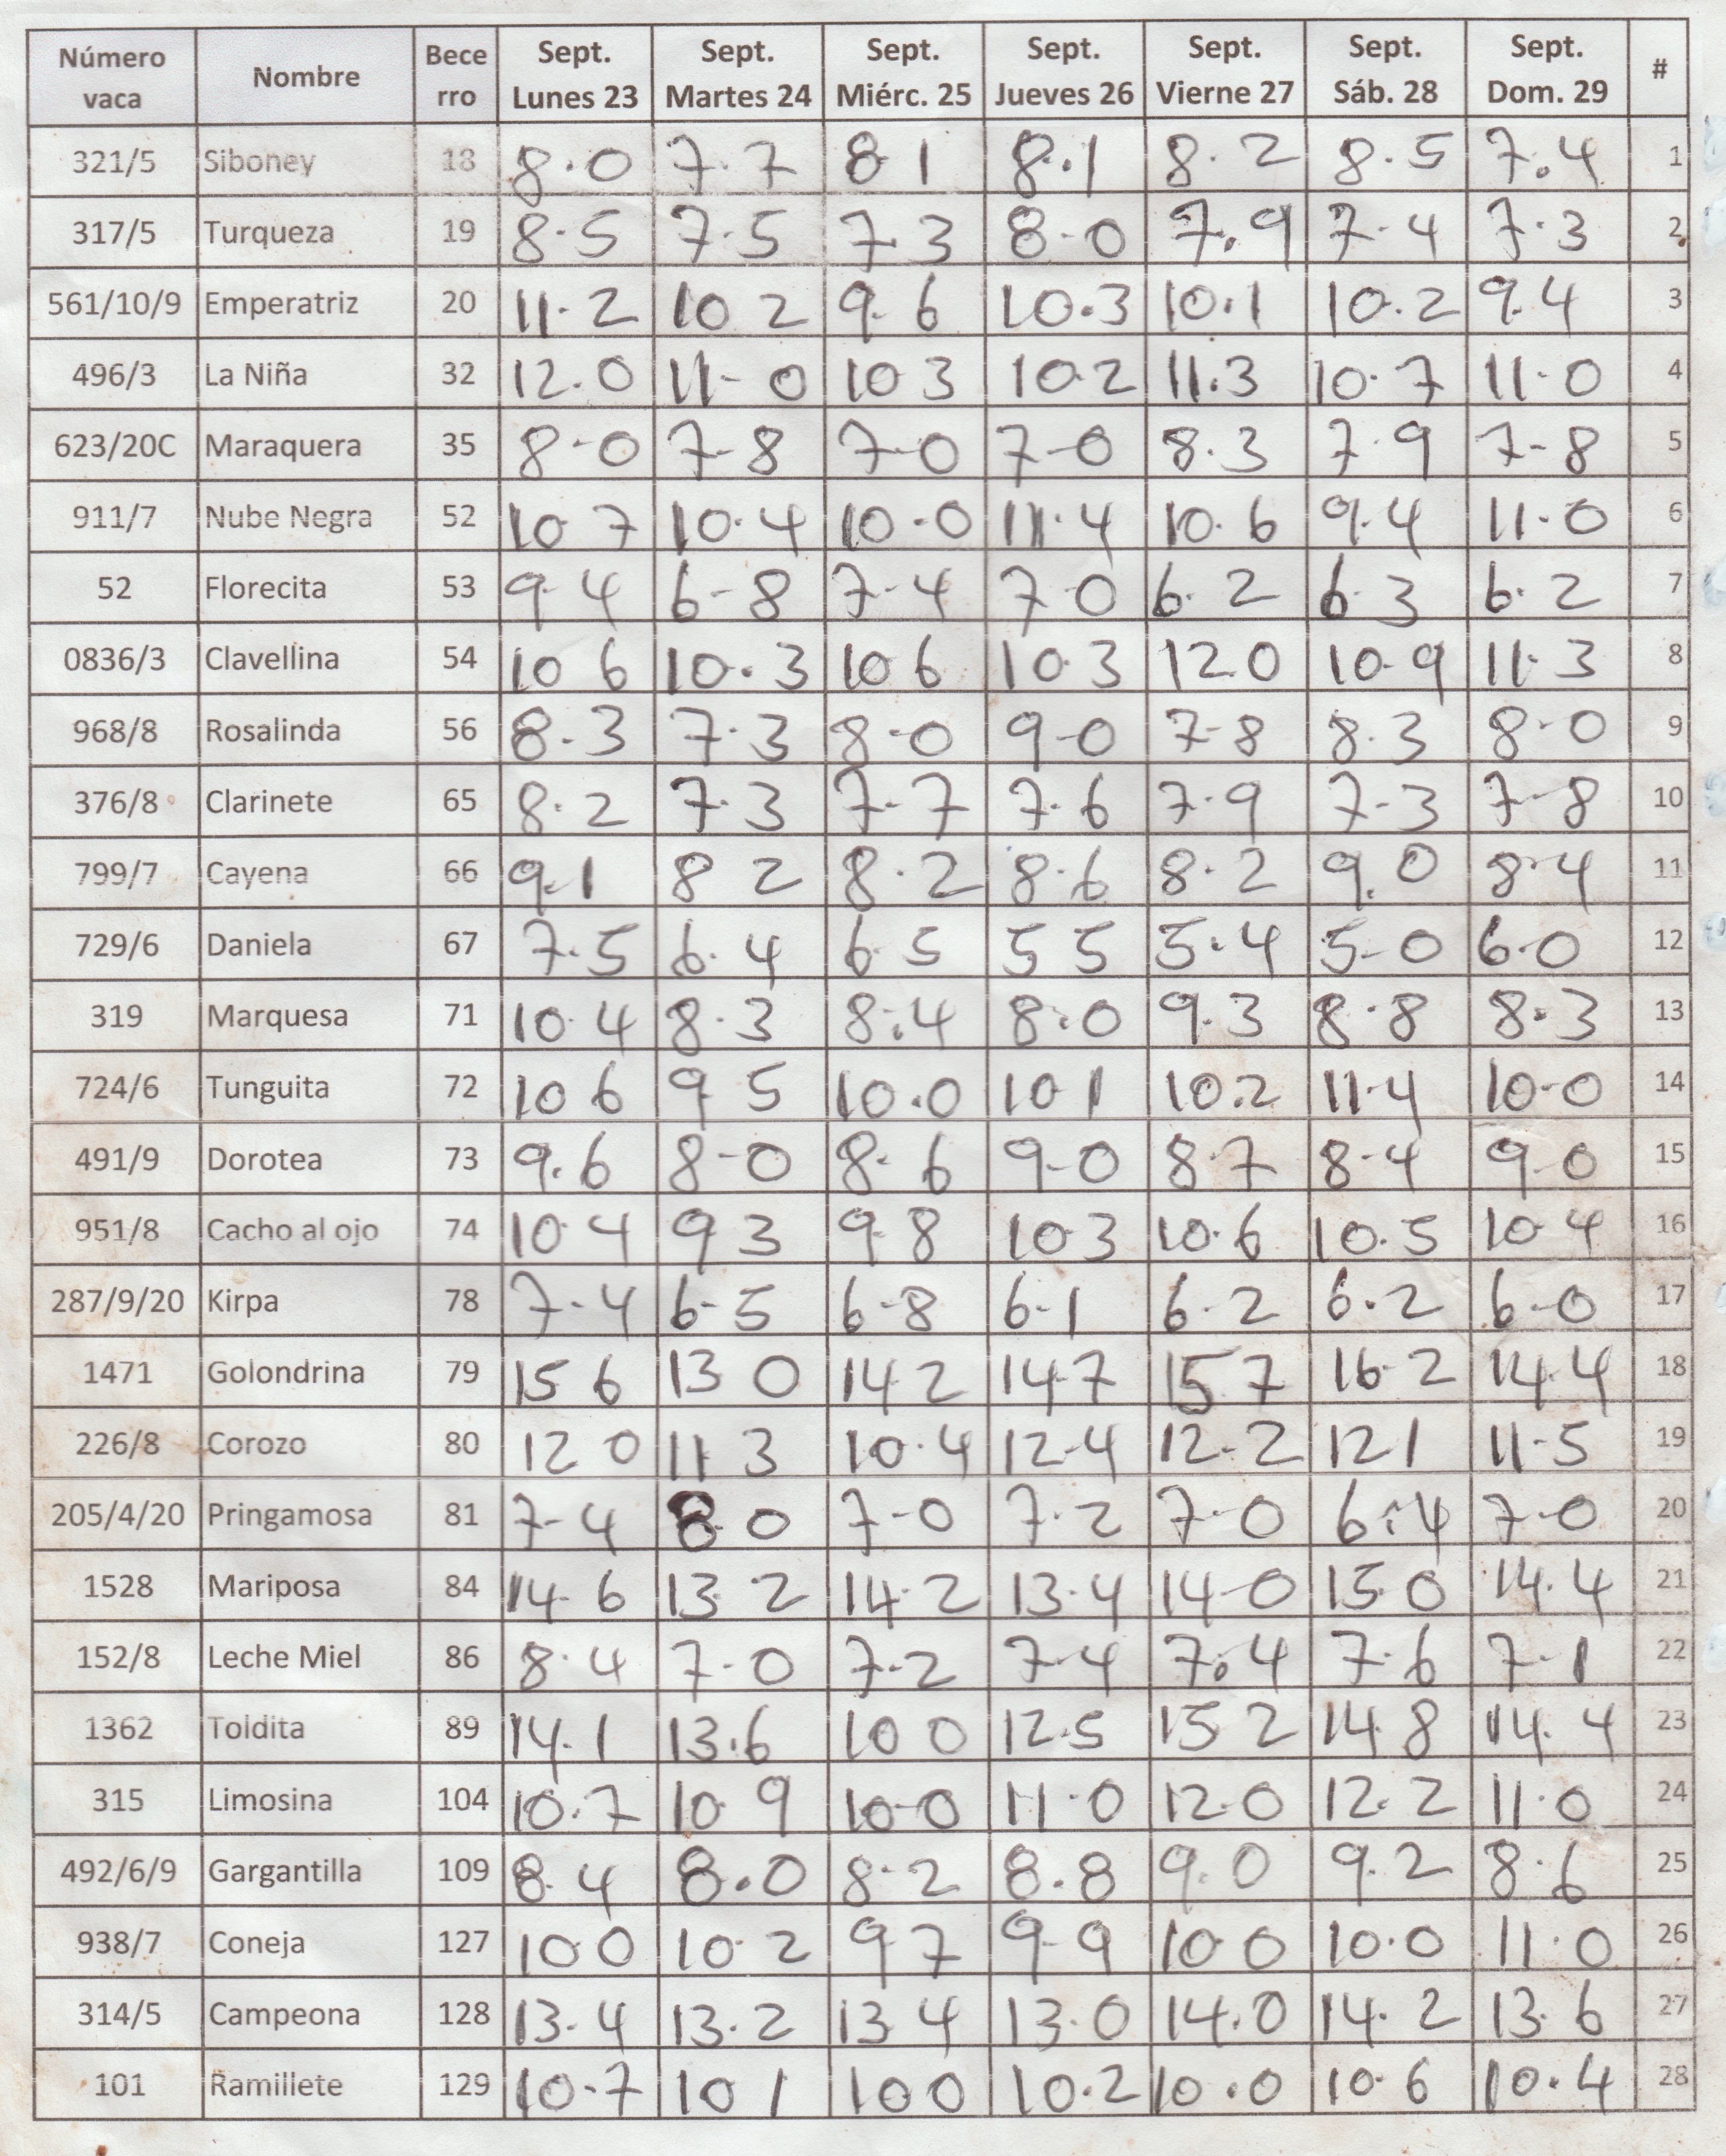 Número vaca Nombre Bece rro Sept. Lunes 23 Sept. Martes 24 Sept. Miérc. 25 Sept. Jueves 26 Sept. Vierne 27 Sept. Sáb. 28 Sept. Dom. 29 #
321/5 Siboney 18 8.0 7.7 8 1 8.1 8.2 8.5 7.4 1
317/5 Turqueza 19 8.5 7.5 7.3 8-0 7.9 7.4 7.3 2
561/10/9 Emperatriz 20 11.2 10 2 9.6 10.3 10.1 10.2 9.4 3
496/3 La Niña 32 12.0 11-0 10 3 10.2 11.3 10.7 11.0 4
623/20C Maraquera 35 8-0 7-8 7-0 7-0 8.3 7.9 7-8 5
911/7 Nube Negra 52 10 7 10.4 10.0 11.4 10.6 9.4 11.0 6
52 Florecita 53 9.4 6-8 7-4 7 0 6.2 6.3 6.2 7
0836/3 Clavellina 54 10 6 10.3 10 6 10.3 12 0 10-9 11.3 8
968/8 Rosalinda 56 8.3 7.3 8-0 9-0 7-8 8.3 8-0 9
376/8 Clarinete 65 8.2 7.3 7-7 7.6 7.9 7-3 7-8 10
799/7 Cayena 66 9.1 8 2 8.2 8.6 8.2 9.0 8.4 11
729/6 Daniela 67 7.5 6.4 6.5 5 5 5.4 5-0 6.0 12
319 Marquesa 71 10.4 8.3 8.4 8.0 9.3 8.8 8.3 13
724/6 Tunguita 72 10 6 9 5 10.0 10 1 10.2 11.4 10-0 14
491/9 Dorotea 73 9.6 8-0 8.6 9-0 8.7 8-4 9-0 15
951/8 Cacho al ojo 74 10.4 9 3 9.8 10 3 10.6 10.5 10 4 16
287/9/20 Kirpa 78 7.4 6-5 6-8 6-1 6.2 6.2 6-0 17
1471 Golondrina 79 15 6 13 0 14 2 14-7 15 7 16.2 14.4 18
226/8 Corozo 80 12 0 11 3 10.4 12-4 12.2 12 1 11-5 19
205/4/20 Pringamosa 81 7-4 8.0 7-0 7.2 7-0 6.4 7-0 20
1528 Mariposa 84 14.6 13 2 14.2 13.4 14-0 15.0 14.4 21
152/8 Leche Miel 86 8.4 7.0 7-2 7-4 7.4 7.6 7-1 22
1362 Toldita 89 14.1 13.6 10 0 12.5 15 2 14.8 14.4 23
315 Limosina 104 10.7 10.9 10-0 11.0 12.0 12.2 11.0 24
492/6/9 Gargantilla 109 8.4 8.0 8.2 8.8 9.0 9.2 8.6 25
938/7 Coneja 127 10 0 10.2 9 7 9-9 10 0 10.0 11.0 26
314/5 Campeona 128 13.4 13.2 13 4 13.0 14.0 14.2 13.6 27
101 Ramillete 129 10.7 10 1 10 0 10.2 10.0 10.6 10.4 28